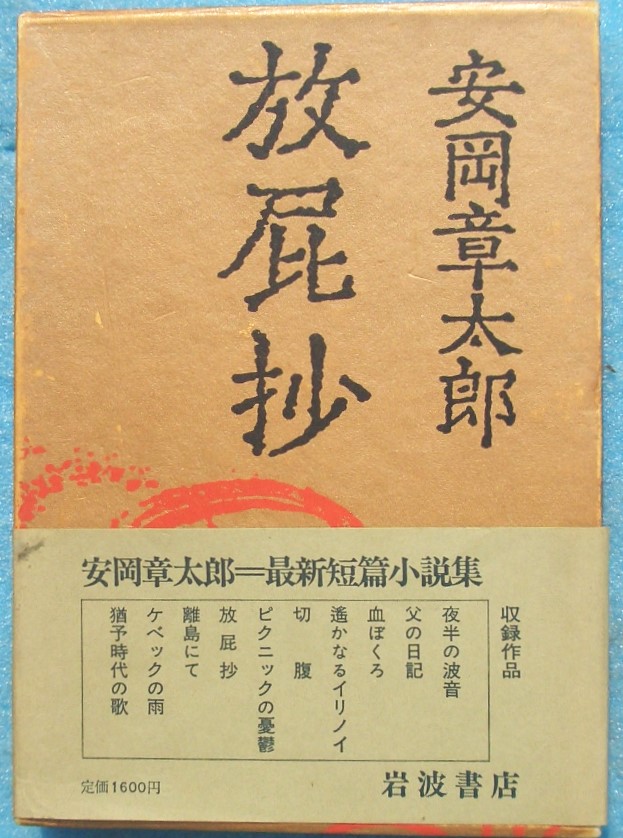 安岡章太郎
放屁抄
安岡章太郎=最新短篇小説集
収録作品
夜半の波音
父の日記
血ぼくろ
遙かなるイリノイ
切腹
ピクニックの憂鬱
放屁抄
離島にて
ケベックの雨
猶予時代の歌
定価1600円
岩波書店